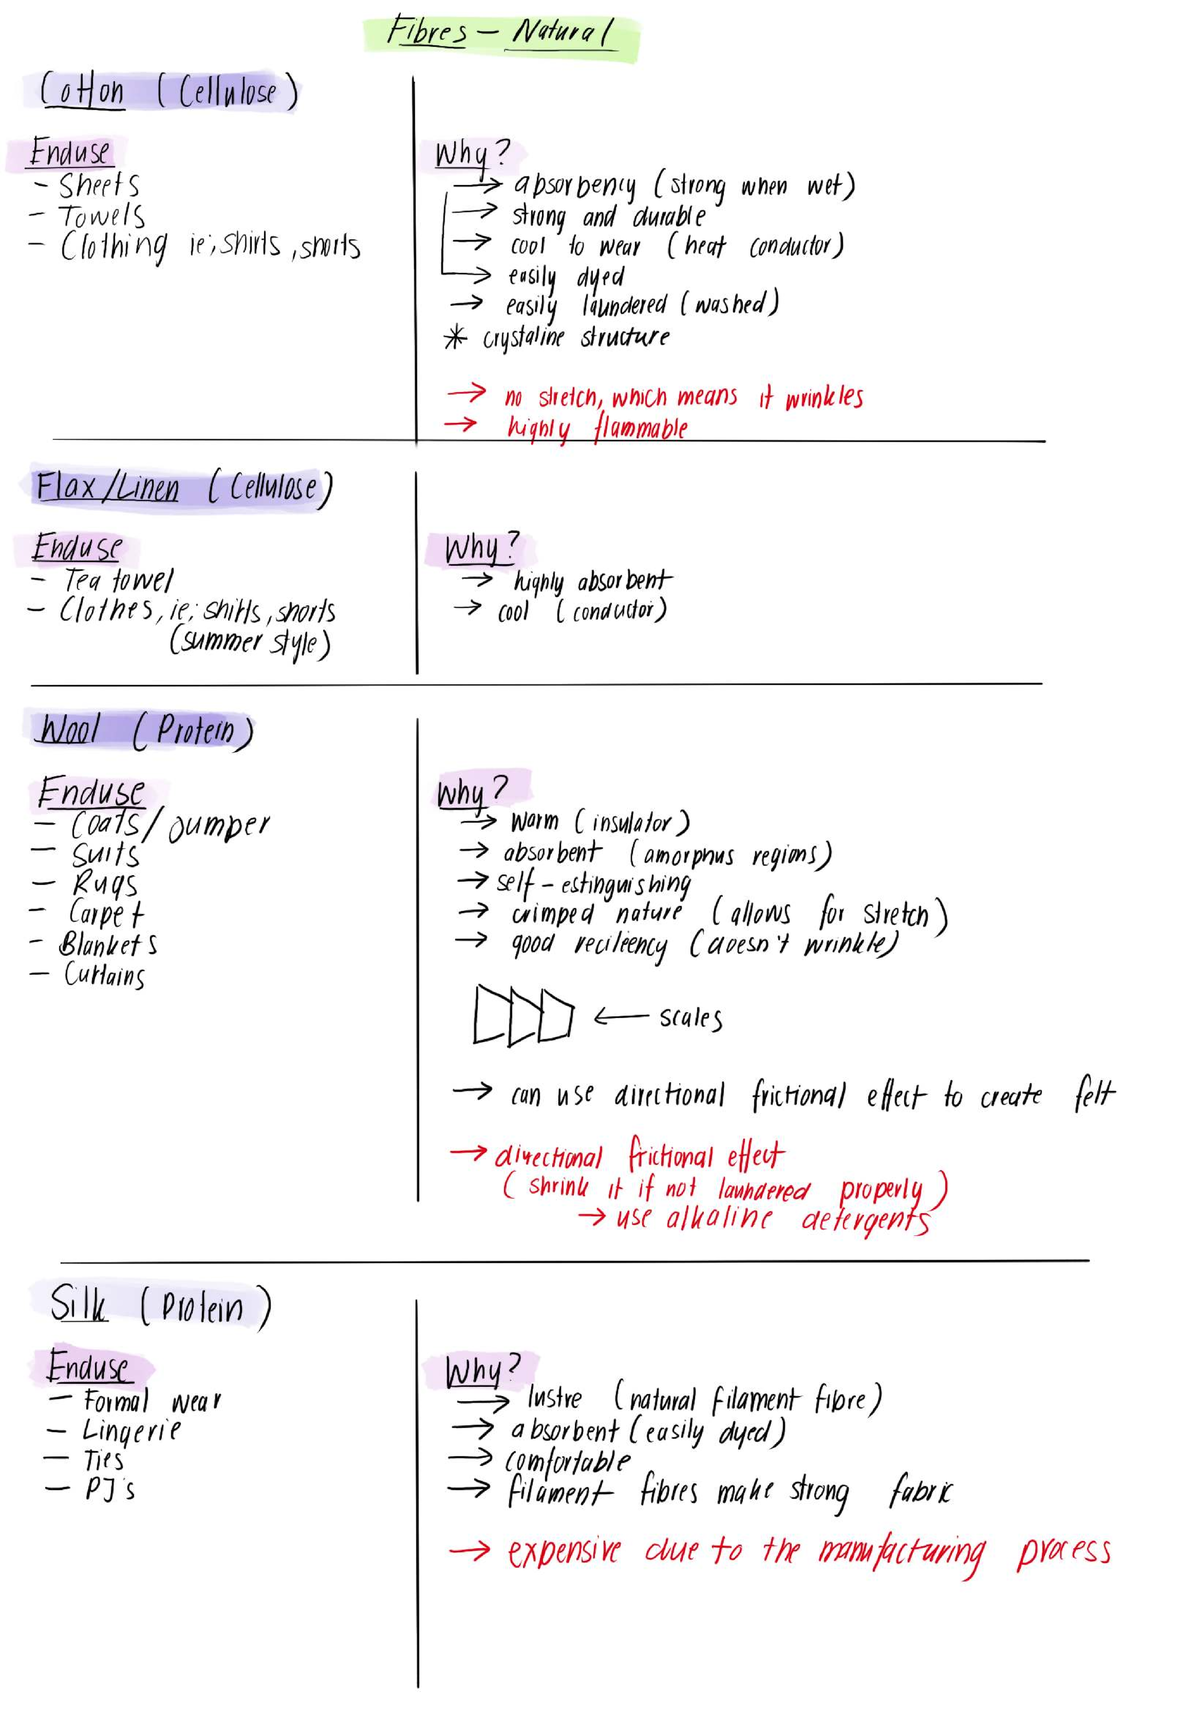 Fibres - Natural
Cotton (Cellulose)
Enduse
- Sheets
- Towels
- Clothing ie; shirts, shorts
Why?
→ absorbency (strong when wet)
→ strong and durable
→ cool to wear (heat conductor)
→ easily dyed
→ easily laundered (washed)
* crystaline structure
→ no stretch, which means it wrinkles
→ highly flammable
Flax/Linen (Cellulose)
Enduse
- Tea towel
- Clothes, ie; shirts, shorts
(summer style)
Why?
→ highly absorbent
→ cool (conductor)
Wool (Protein)
Enduse
- Coats/Jumper
- Suits
- Rugs
- Carpet
- Blankets
- Curtains
Why?
→ warm (insulator)
→ absorbent (amorphus regions)
→ self-estinguishing
→ crimped nature (allows for stretch)
→ good recileency (doesn't wrinkle)
← scales
→ can use directional frictional effect to create felt
→ directional frictional effect
(shrink it if not laundered properly)
→ use alkaline detergents
Silk (Protein)
Enduse
- Formal wear
- Lingerie
- Ties
- PJ's
Why?
→ lustre (natural filament fibre)
→ absorbent (easily dyed)
→ comfortable
→ filament fibres make strong fabric
→ expensive due to the manufacturing process